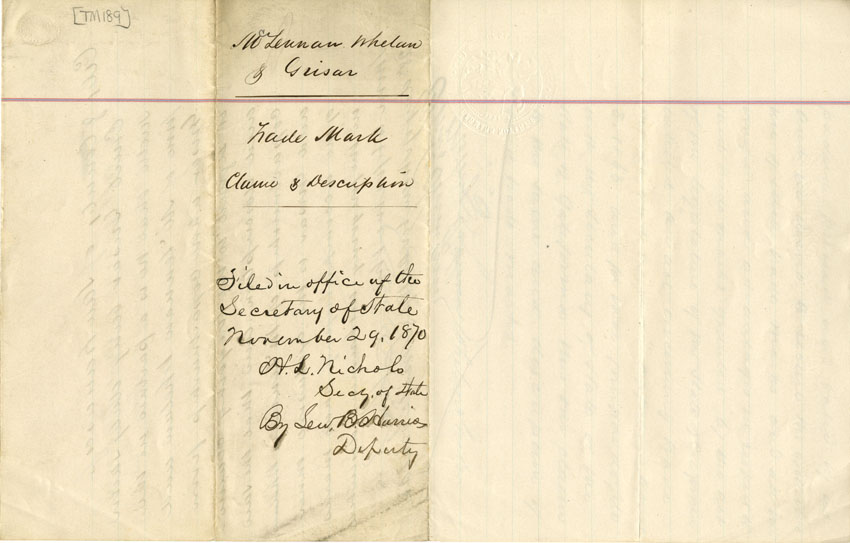 [TM189]
McLennan Whelan
& Grisar
Trade Mark
Claim & Description
Filed in office of the
Secretary of State
November 29, 1870
H. L. Nichols
Secy. of State
By Lew. B. Harris
Deputy